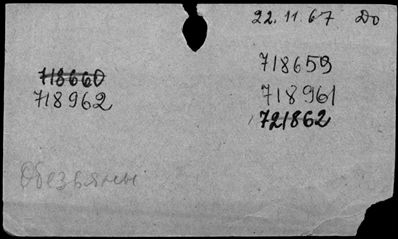 22.11.67 До
718659
718660
718962
718961
721862
Обезьяны